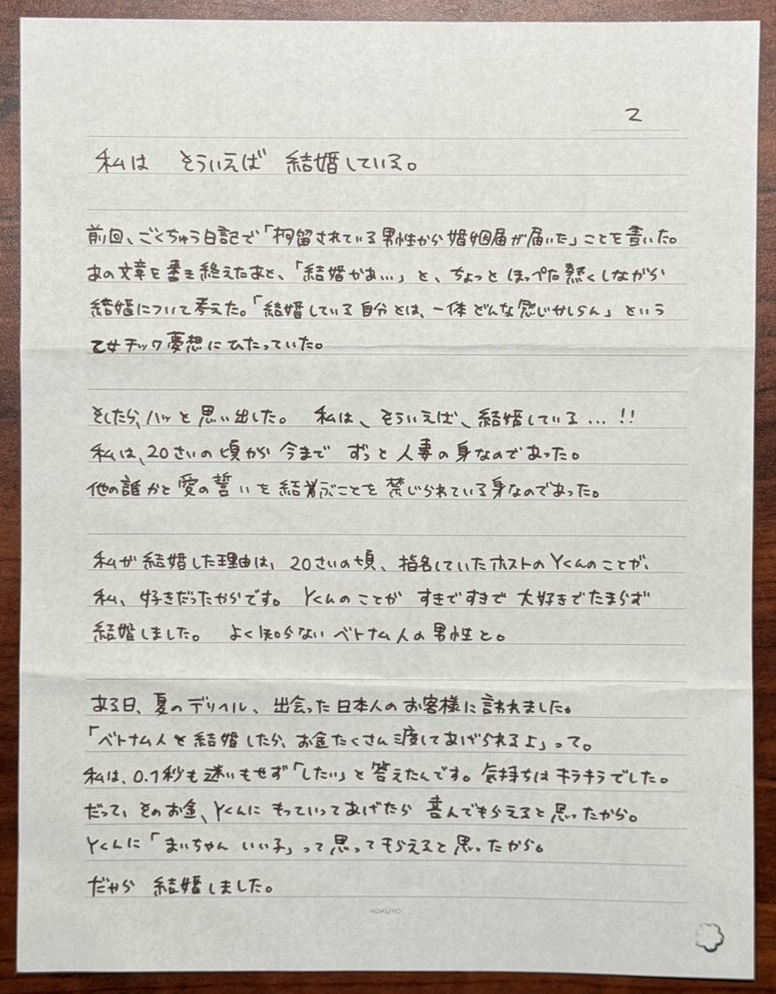 2
私は そういえば 結婚している。
前回、ごくちゅう日記で「拘留されている男性から婚姻届が届いた」ことを書いた。
あの文章を書き終えたあと、「結婚かぁ…」と、ちょっとほっぺた熱くしながら
結婚について考えた。「結婚している自分とは、一体どんな感じかしらん」という
乙女チック夢想にひたっていた。
そしたら、ハッと思い出した。 私は、そういえば、結婚している…!!
私は、20さいの頃から今まで ずっと人妻の身なのであった。
他の誰かと愛の誓いを結ぶことを禁じられている身なのであった。
私が結婚した理由は、20さいの頃、指名していたホストのYくんのことが、
私、好きだったからです。 Yくんのことが すきですきで 大好きでたまらず
結婚しました。 よく知らない ベトナム人の男性と。
ある日、夏のデリヘル、出会った日本人のお客様に言われました。
「ベトナム人と結婚したら、お金たくさん渡してあげられるよ」って。
私は、0.1秒も迷いもせず「したい」と答えたんです。気持ちはキラキラでした。
だって、そのお金、Yくんに もっていってあげたら 喜んでもらえると思ったから。
Yくんに「まいちゃん いい子」って思ってもらえると思ったから。
だから 結婚しました。
KOKUYO